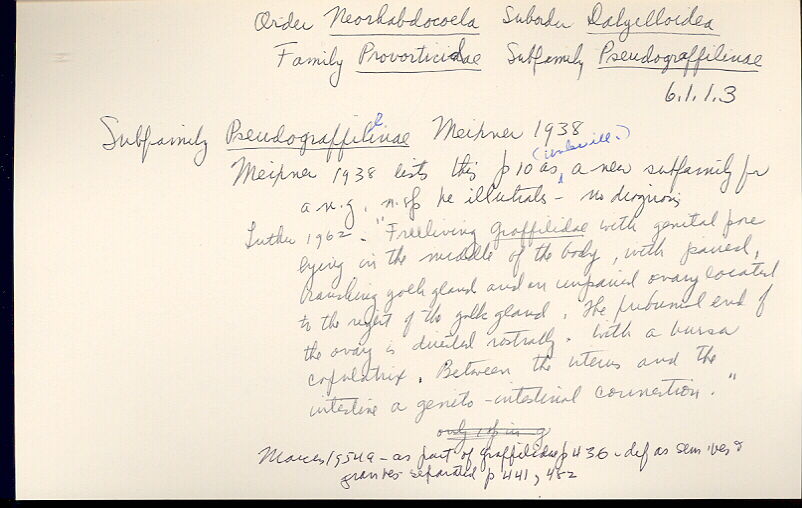 Order Neorhabdocoela Suborder Dalyelloidea
Family Provorticidae Subfamily Pseudograffilinae
6.1.1.3
Subfamily Pseudograffilinae Meixner 1938
Meixner 1938 lists this p 10 as a new subfamily for
a n.g. n.sp he illustrats - no diagnosis
Luther 1962 - "Freeliving Graffilidae with genital pore
lying in the middle of the body, with paired,
branching yolk gland and an unpaired ovary located
to the right of the yolk gland. The proximal end of
the ovary is directed rostrally. With a bursa
copulatrix. Between the uterus and the
intestine a genito-intestinal connection."
only 1 sp in g
Marcus 1954a - as part of Graffilidae p 436 - def as sem ves &
separated p 441, 452